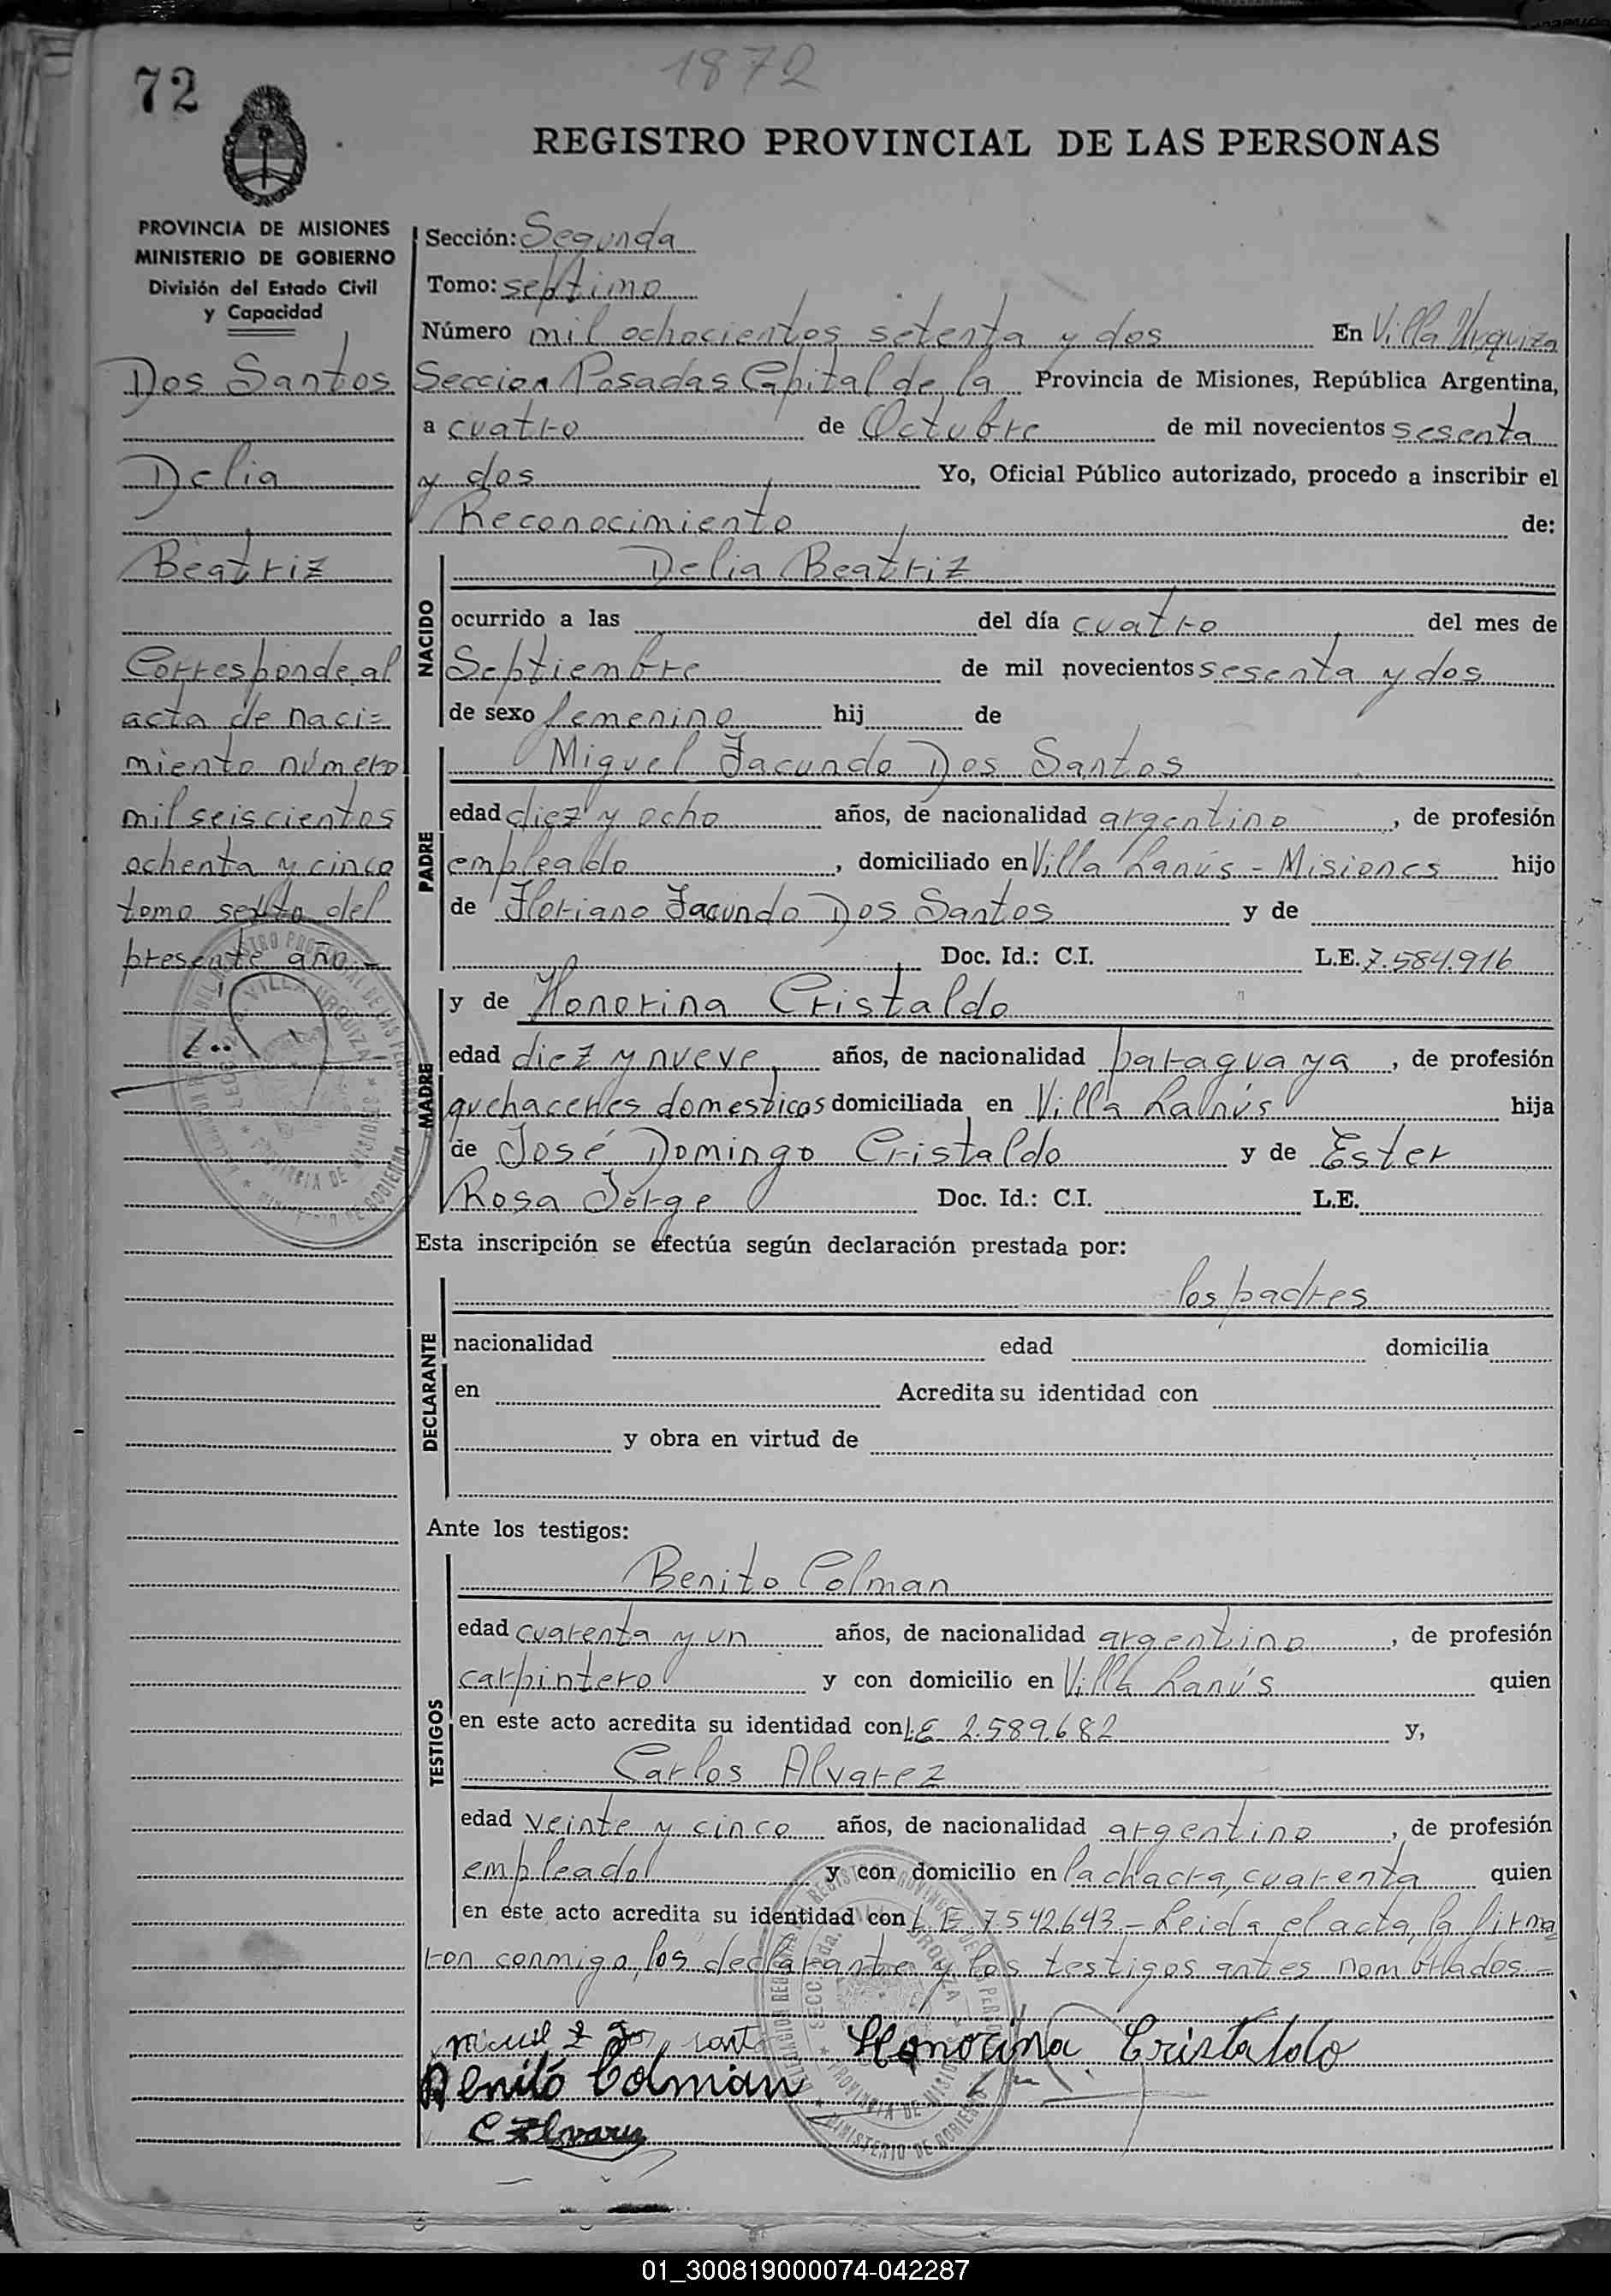 1872
72
REGISTRO PROVINCIAL DE LAS PERSONAS
PROVINCIA DE MISIONES
MINISTERIO DE GOBIERNO
División del Estado Civil
y Capacidad
Dos Santos
Delia
Beatriz
Corresponde al
acta de naci=
miento número
mil seiscientos
ochenta y cinco
tomo sexto del
presente año.-
Sección: Segunda
Tomo: septimo
Número mil ochocientos setenta y dos En Villa Urquiza
Seccion Posadas Capital de la Provincia de Misiones, República Argentina,
a cuatro de Octubre de mil novecientos sesenta
y dos Yo, Oficial Público autorizado, procedo a inscribir el
Reconocimiento de:
NACIDO
Delia Beatriz
ocurrido a las del día cuatro del mes de
Septiembre de mil novecientos sesenta y dos
de sexo femenino hij de
PADRE
Miguel Facundo Dos Santos
edad diez y ocho años, de nacionalidad argentino, de profesión
empleado, domiciliado en Villa Lanús - Misiones hijo
de Floriano Facundo Dos Santos y de
Doc. Id.: C.I. L.E. 7.584.916
MADRE
y de Honorina Cristaldo
edad diez y nueve años, de nacionalidad paraguaya, de profesión
quehaceres domesticos domiciliada en Villa Lanús hija
de José Domingo Cristaldo y de Ester
Rosa Jorge Doc. Id.: C.I. L.E.
Esta inscripción se efectúa según declaración prestada por:
DECLARANTE
los padres
nacionalidad edad domicilia
en Acredita su identidad con
y obra en virtud de
Ante los testigos:
TESTIGOS
Benito Colman
edad cuarenta y un años, de nacionalidad argentino, de profesión
carpintero y con domicilio en Villa Lanús quien
en este acto acredita su identidad con L.E. 2.589.682 y,
Carlos Alvarez
edad veinte y cinco años, de nacionalidad argentino, de profesión
empleado y con domicilio en la chacra cuarenta quien
en este acto acredita su identidad con L.E. 7.542.643 - Leida el acta, la firma
ron conmigo, los declarante y los testigos antes nombrados.-
Honorina Cristaldo
Benito Colman
C Alvarez
01_300819000074-042287